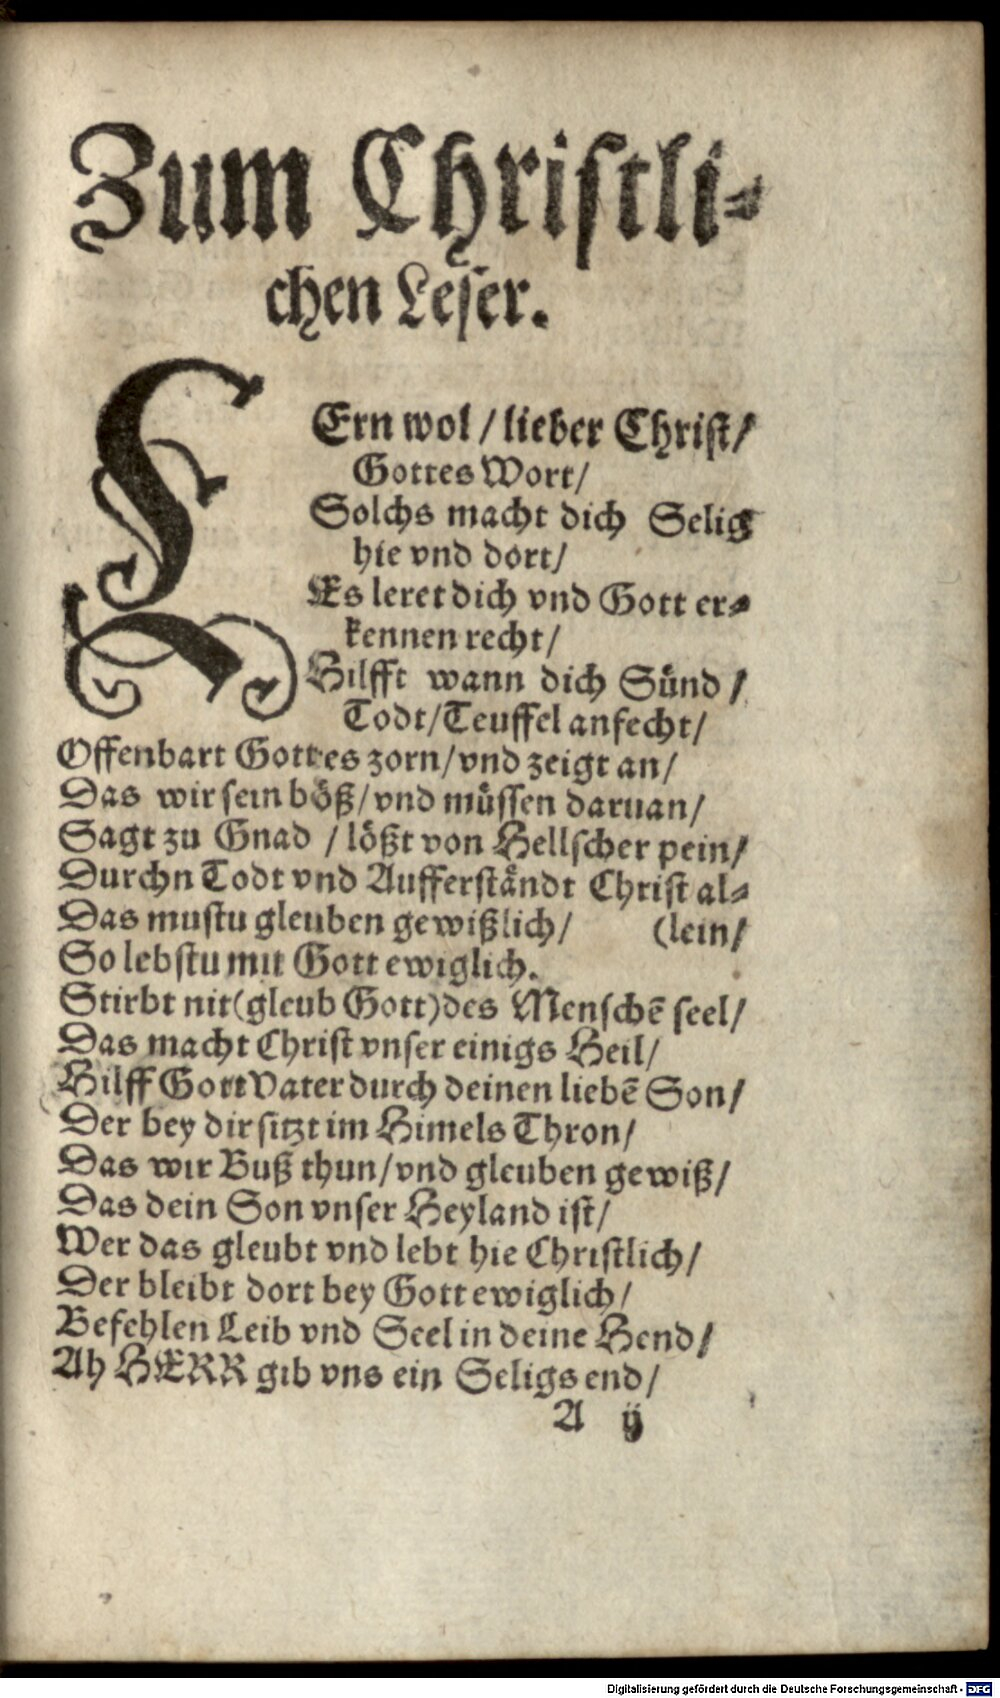 Zum Christli-
chen Leser.
LErn wol / lieber Christ/
Gottes Wort/
Solchs macht dich Selig
hie vnd dort/
Es leret dich vnd Gott er-
kennen recht/
Hilfft wann dich Sünd /
Todt/Teuffel anfecht/
Offenbart Gottes zorn/vnd zeigt an/
Das wir sein böß/vnd müssen daruan/
Sagt zu Gnad / lößt von Hellscher pein/
Durchn Todt vnd Aufferständt Christ al-
Das mustu gleuben gewißlich/ (lein/
So lebstu mit Gott ewiglich.
Stirbt nit(gleub Gott)des Menschē seel/
Das macht Christ vnser einigs Heil/
Hilff Gott Vater durch deinen liebē Son/
Der bey dir sitzt im Himels Thron/
Das wir Buß thun/vnd gleuben gewiß/
Das dein Son vnser Heyland ist/
Wer das gleubt vnd lebt hie Christlich/
Der bleibt dort bey Gott ewiglich/
Befehlen Leib vnd Seel in deine Hend/
Ah HERR gib vns ein Seligs end/
A ij
Digitalisierung gefördert durch die Deutsche Forschungsgemeinschaft - DFG